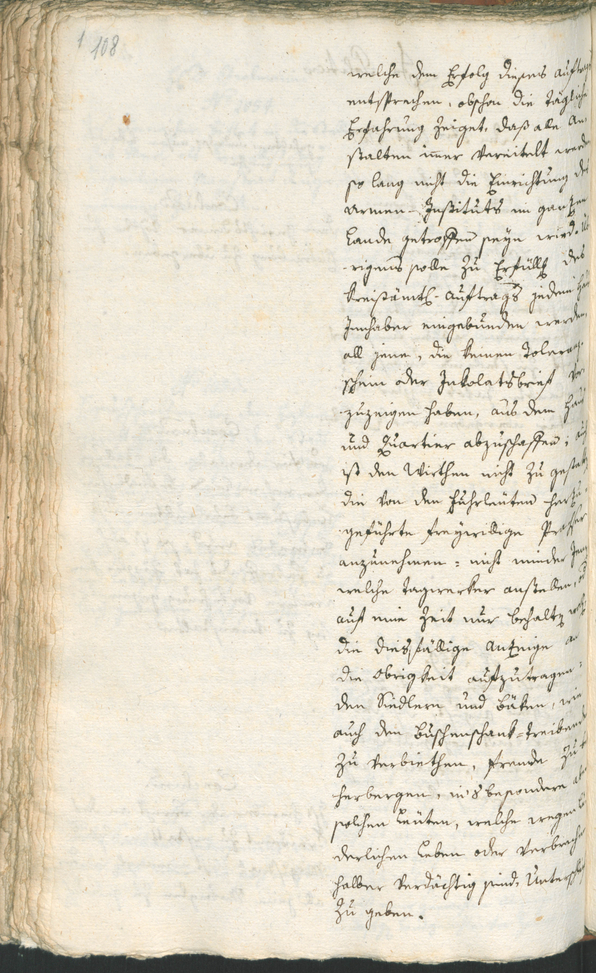 108
welche dem Erfolg dieses auftrags
entsprechen, obschon die tägliche
Erfahrung zeiget, daß alle An-
stalten immer vereitelt werden
so lang nicht die Einrichtung des
Armen-Instituts im ganzen
Lande getroffen seyn wird. Üb-
rigens solle zu Erfüllg des
Kreisämtl. Auftrags jedem Haus
Innhaber eingebunden werden,
all jene, die keinen Toleranz-
schein oder Inkolatsbrief vor-
zuzeigen haben, aus dem Haus
und Quartier abzuschaffen; auch
ist den Wirthen nicht zu gestatten
die von den Fuhrleuten
geführte
anzunehmen: nicht minder
welche Tagwerker anstellen,
auf eine Zeit nur
die diesfällige Anzeige an
die Obrigkeit aufzutragen:
den Siedlern und Bäken, wie
auch den Buschenschank-treibenden
zu verbiethen, fremde zu
herbergen, insbesondere aber
solchen Leuten, welche wegen lü-
derlichen Leben oder Verbrechen
halber verdächtig sind, Unterschleif
zu geben.